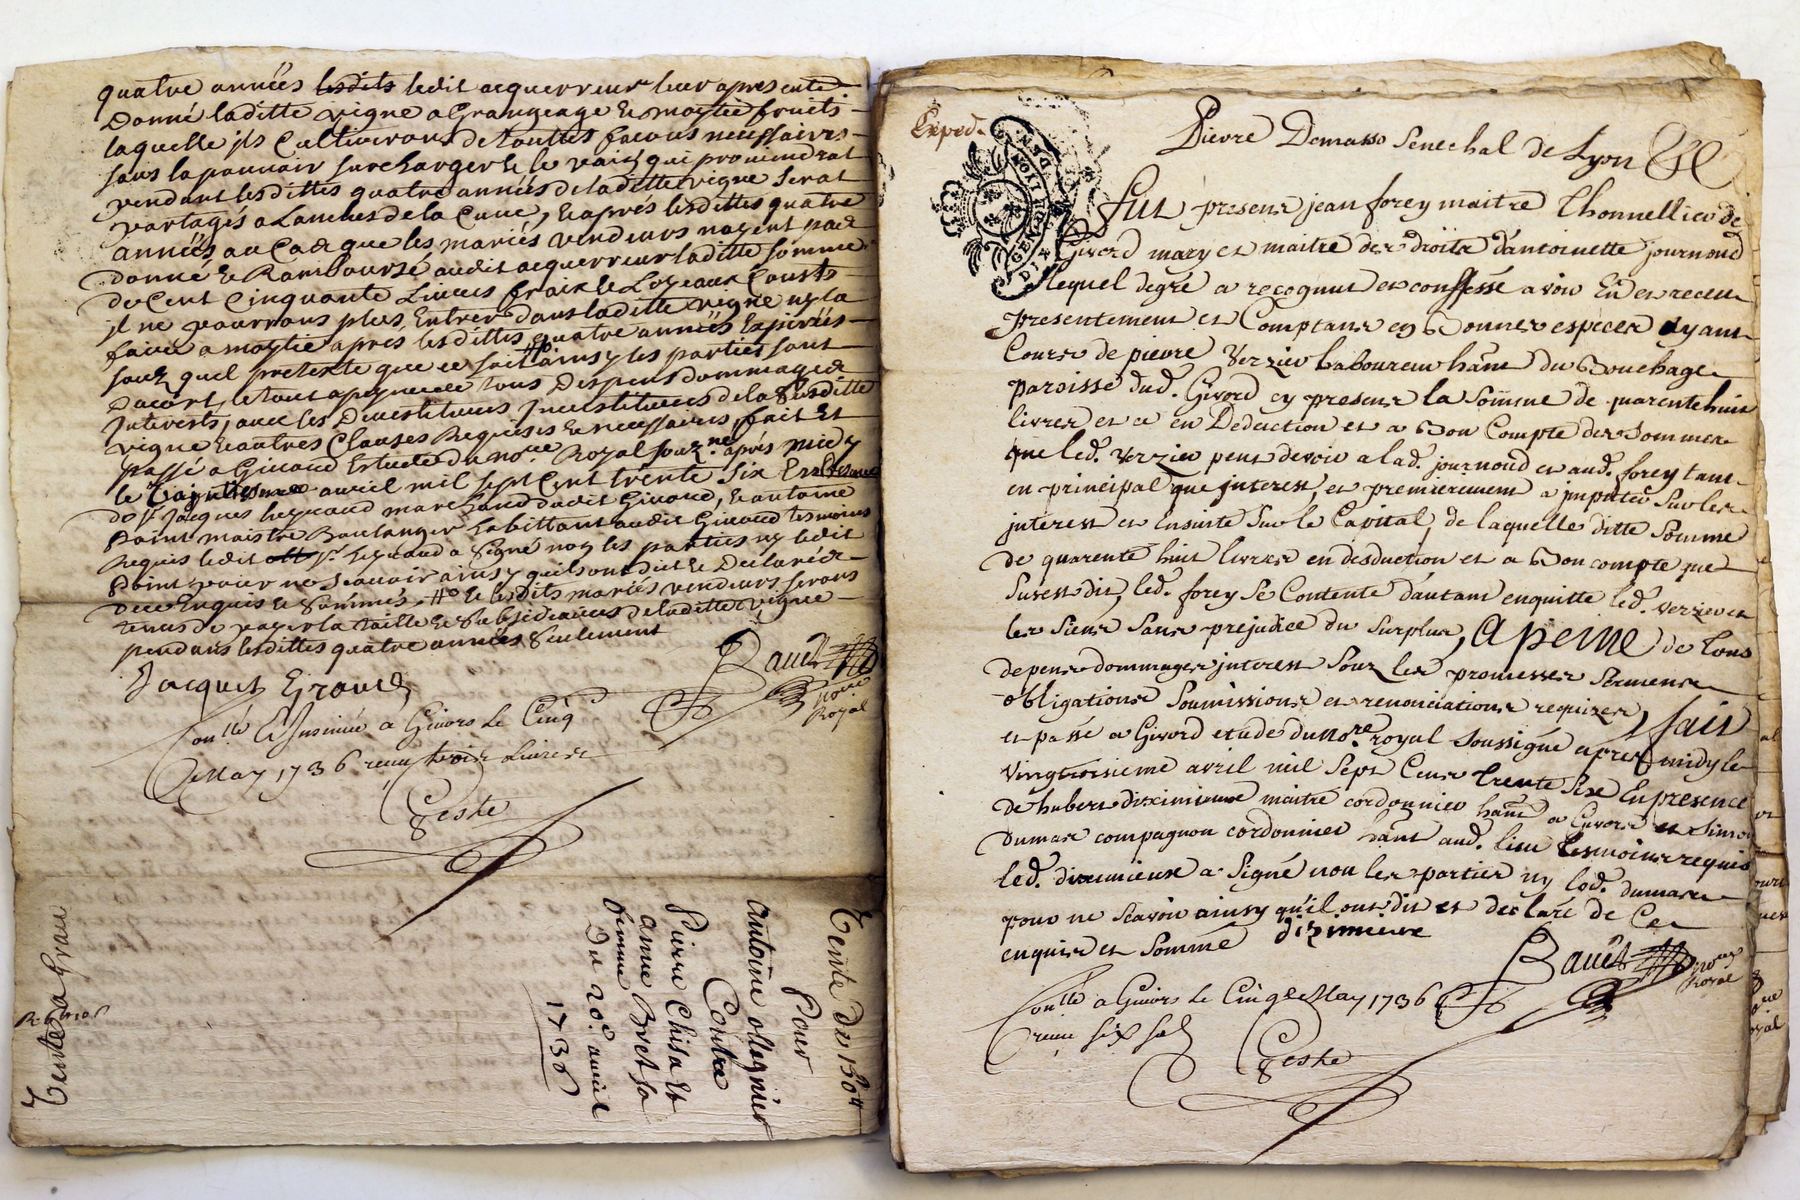 quatre années lesdits ledit acquerreur leur apresente
Donné laditte vigne a Grangeage et moytie fruits
laquelle jls Cultiveront de touttes facons necessaires
sans la pouvoir surcharger et le raisin qui proviendrat
pendant lesdittes quatre années de laditte vigne serat
partagés a Lanches de la Cuve, et aprés lesdittes quatre
années au Cas que les mariés vendeurs nayent pas
donné et Rambourse audit acquerreur laditte somme
de Cent Cinquante Livres fraix et Loyeaux Cousts
jl ne pourront plus Entrer dans laditte vigne ny la
faire a moytie aprés lesdittes quatre années Expirées
souz quel pretexte que ce soit ainsy les parties sont
Dacort, le tout apeyne de tous Despens dommages
Interets, avec les Divestitures Jnvestitures de la susditte
vigne et autres Clauses Requises et necessaires, fait et
passé a Givord Estude du nore Royal souz.né aprés midy
le vingtiesme avril mil sept Cent trente six En presence
de sr Jacques heyraud marchand dudit Givord, et antoine
Point maistre Boulanger habittant audit Givord tesmoins
Requis ledit sr heyraud a Signé non les parties ny ledit
Point pour ne scavoir ainsy quils ont dit et Declaré
de ce Enquis et Sommés, et lesdits mariés vendeurs seront
tenus de payer la taille et subsidiaires de laditte vigne
pendant lesdittes quatre années Seulement
Jacques Eyraud
Bauet nore Royal
Conllé et Insinué a Givors Le Cinq
May 1736 receu trois Livres
Geste
Vente de 150lt
Pour
antoine ollagnier
Contre
Pierre Chisat et
anne Bret sa
femme
Du 20e avril
1736
Vente a Grace
Exped.
Pierre Demasso Senechal de Lyon
GEN DE LYON
Fut present jean forey maitre thonnellier de
Givord mary et maitre des droits d'antoinette journoud
lequel degré a recognut et confessé avoir Eü et receu
presentement et Comptant en Bonnes especes ayant
Cours de pierre Verzieu Laboureur hānt du Bouchage
paroisse dud. Givord cy present la Somme de quarente huit
livres et a en Deduction et a Bon Compte des Sommes
que led. Verzieu peut devoir a lad. journoud et aud. forey tant
en principal que jnterest, et premierement a jmputer sur les
jnterest et ensuitte sur le Capital, de laquelle ditte Somme
de quarente huit livres en desduction et a Bon compte que
Susest dit, led. forey se Contente d'autant enquitte led. verzieu et
les siens sans prejudice du surplus, Apeine de tous
depens dommages jnterest sous les promesses sermens
obligations soumissions et renonciations requizes, fait
et passé a Givord etude du nore royal soussigné apres midy le
vingtroisieme avril mil sept Cens trente six En presence
de hubert diximieux maitre cordonnier hānt a Givors et simon
dumas compagnon cordonnier hānt aud. lieu tesmoins requis
led. diximieux a signé non les parties ny led. dumas
pour ne scavoir ainsy qu'il ont dit et declaré de Ce
enquis et sommé
dizimieux
Bauet nore Royal
Conllé a Givors le Cinq May 1736
receu six sols
Geste